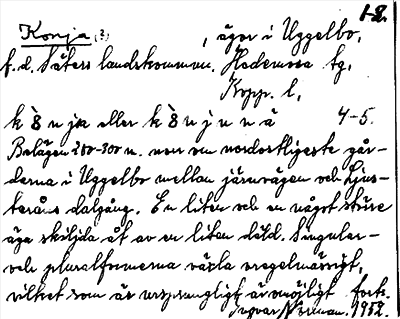 1-2.
Konja (?), äger i Uggelbo,
f.d. Säters landskommun, Hedemora tg,
Kopp. l,
k 8 n ja eller k 8 n j u n a 4-5.
Belägen 200-300 m. norr om nordostligaste går-
darna i Uggelbo mellan järnvägen och Ljus-
teråns dalgång. En liten och en något större
äga skiljda åt av en liten däld. Singular-
och pluralformerna växla oregelmässigt,
vilket som är ursprungligt är omöjligt forts.
Ingvar Norman. 1952.